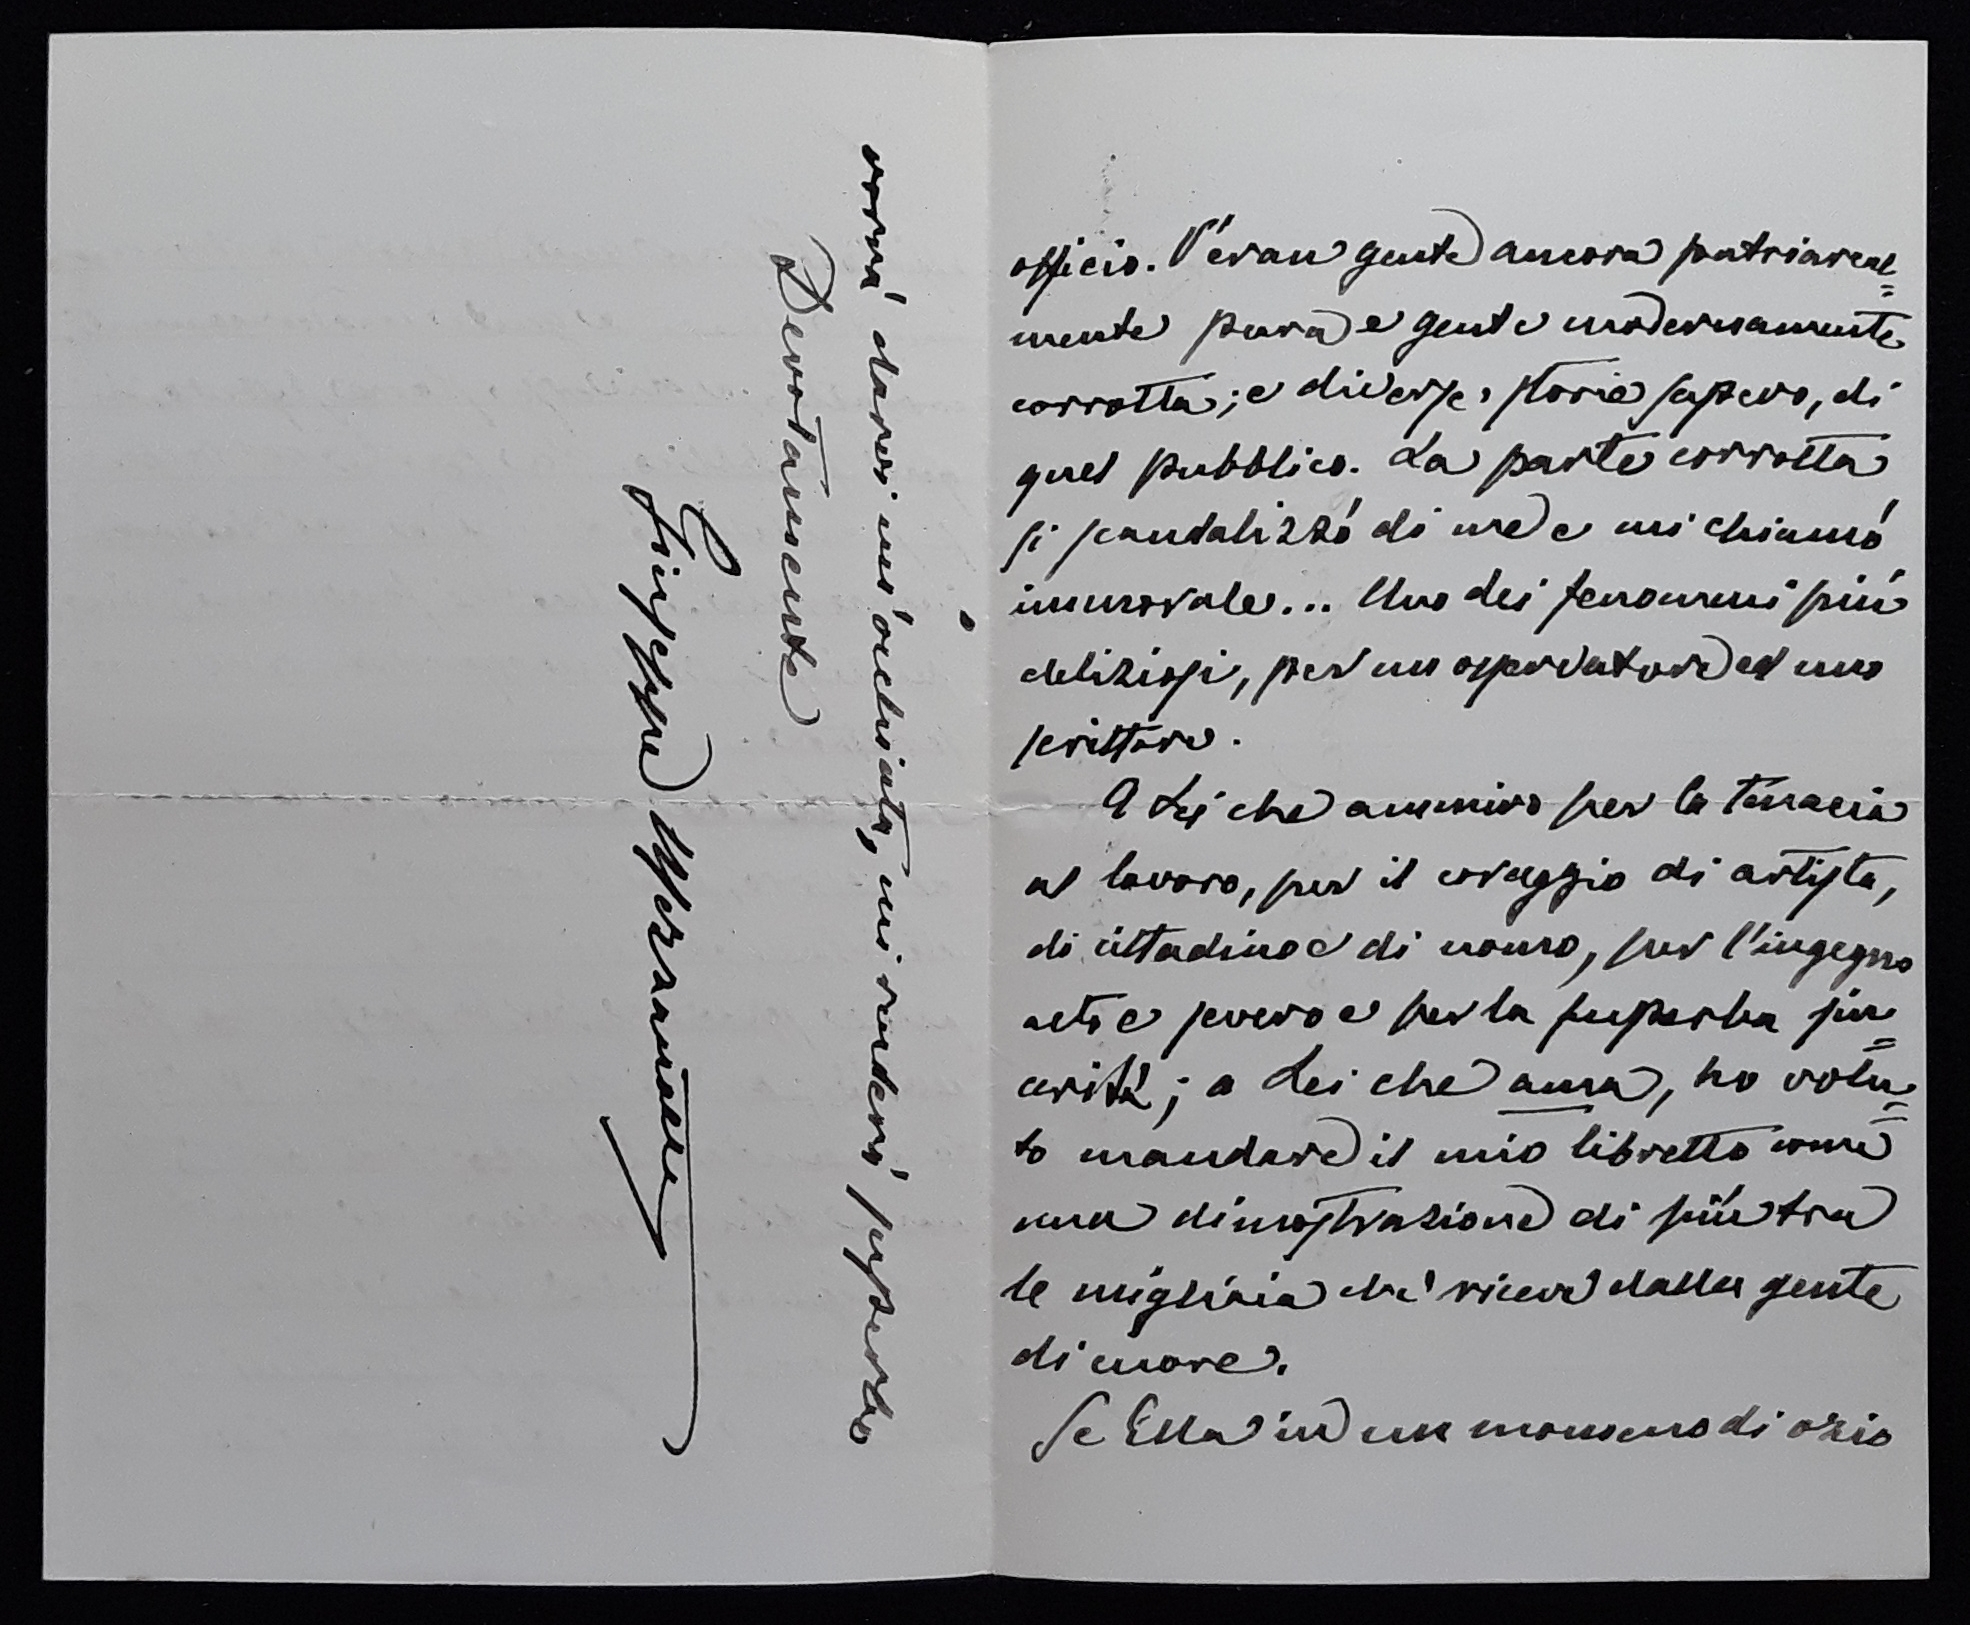 officio. V'eran gente ancora patriarcal=
mente pura e gente modernamente
corrotta; e diverse storie sapevo, di
quel pubblico. La parte corrotta
si scandalizzò di me e mi chiamò
immorale... Uno dei fenomeni più
deliziosi, per un osservatore ed uno
scrittore.
A Lei che ammiro per la tenacia
al lavoro, per il coraggio di artista,
di cittadino e di uomo, per l'ingegno
alto e severo e per la superba sin=
cerità; a Lei che ama, ho volu=
to mandare il mio libretto come
una dimostrazione di più tra
le migliaia che riceve dalla gente
di cuore.
Se Ella in un momeno di ozio
vorrà darvi un'occhiata, mi renderà superbo
Devotamente
Giuseppe Mezzanotte